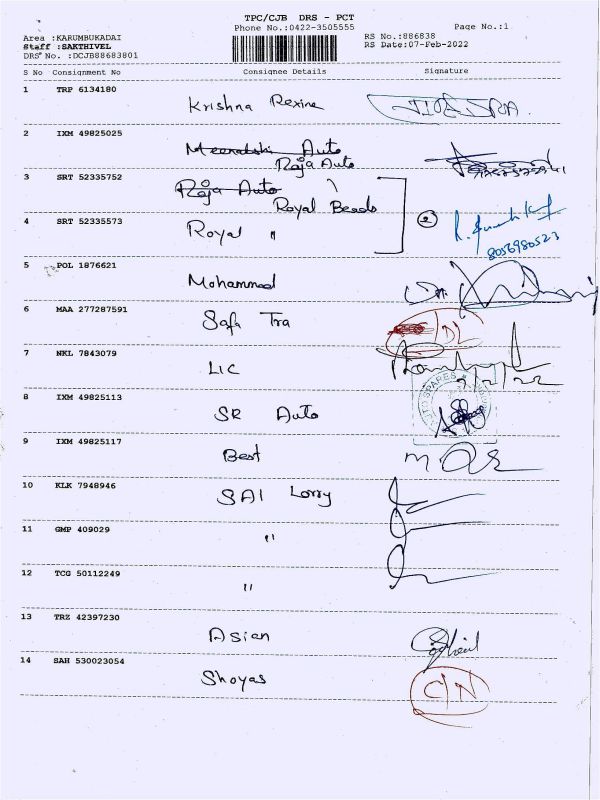 TPC/CJB DRS - PCT
Phone No.:0422-3505555 Page No.:1
Area :KARUMBUKADAI RS No.:886838
Staff :SAKTHIVEL RS Date:07-Feb-2022
DRS No. :DCJB88683801
S No Consignment No Consignee Details Signature
1 TRP 6134180 Krishna Rexine
2 IXM 49825025 Meenatshi Auto
Raja Auto
3 SRT 52335752 Raja Auto
Royal Beads
4 SRT 52335573 Royal " 2
8056980523
5 POL 1876621 Mohammed
6 MAA 277287591 Safa Tra DL
7 NKL 7843079 LIC
8 IXM 49825113 SR Auto
AUTO SPARES
9 IXM 49825117 Best
10 KLK 7948946 SAI Lorry
11 GMP 409029 "
12 TCG 50112249 "
13 TRZ 42397230 Asian
14 SAH 530023054 Shoyas C/N